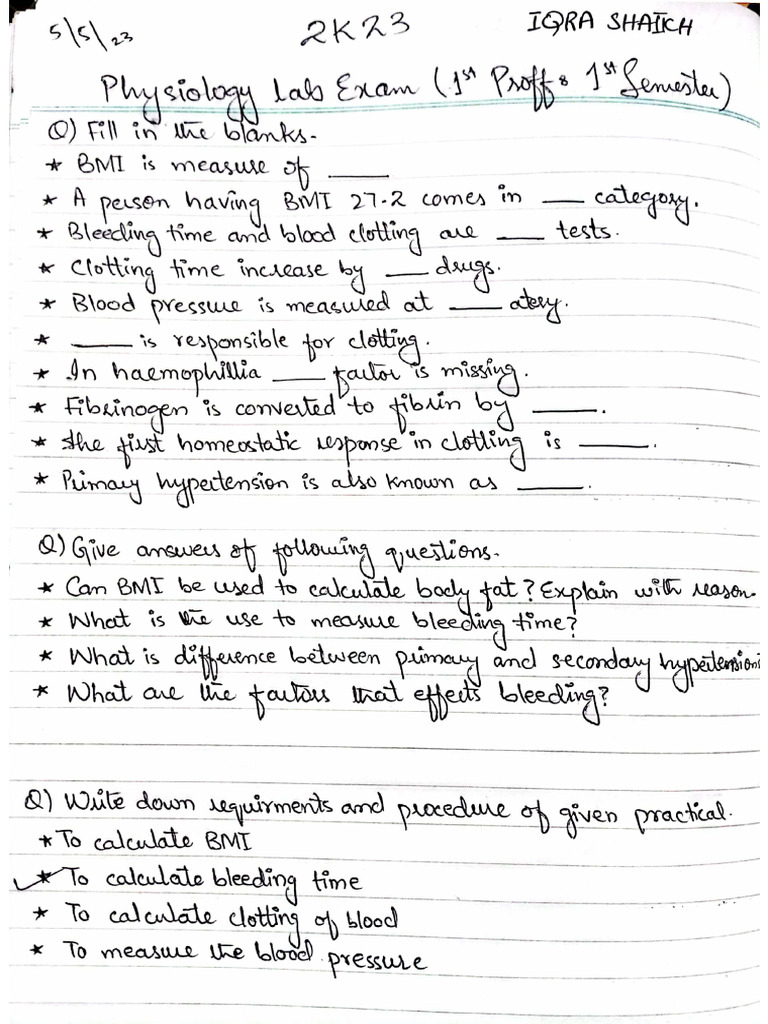 5/5/23 2K23 IQRA SHAIKH
Physiology Lab Exam (1st Proff & 1st Semester)
Q) Fill in the blanks.
* BMI is measure of ____
* A person having BMI 27.2 comes in ___ category.
* Bleeding time and blood clotting are ___ tests.
* Clotting time increase by ___ drugs.
* Blood pressure is measured at ____ atery.
* ____ is responsible for clotting.
* In haemophillia ____ factor is missing.
* Fibrinogen is converted to fibrin by _____.
* the first homeostatic response in clotting is _____.
* Primary hypertension is also known as _____.
Q) Give answers of following questions.
* Can BMI be used to calculate body fat? Explain with reason.
* What is the use to measure bleeding time?
* What is difference between primary and secondary hypertension?
* What are the factors that effects bleeding?
Q) Write down requirments and procedure of given practical.
* To calculate BMI
* To calculate bleeding time
* To calculate clotting of blood
* To measure the blood pressure